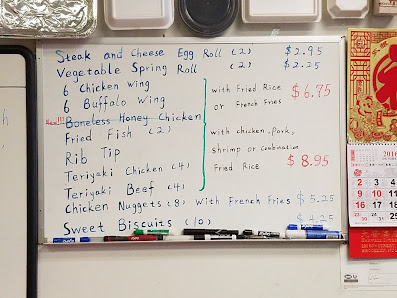 Steak and Cheese Egg Roll (2) $2.95
Vegetable Spring Roll (2) $2.25
6 Chicken Wing
6 Buffalo Wing
with Fried Rice $6.75
or French Fries
Boneless Honey Chicken
Fried Fish (2)
with chicken, pork,
shrimp or combination
Rib Tip
Fried Rice $8.95
Teriyaki Chicken (4)
Teriyaki Beef (4)
Chicken Nuggets (8) with French Fries $5.25
Sweet Biscuits (10) $4.25
2016
2 3 4 5
9 10 11 12
16 17 18 19